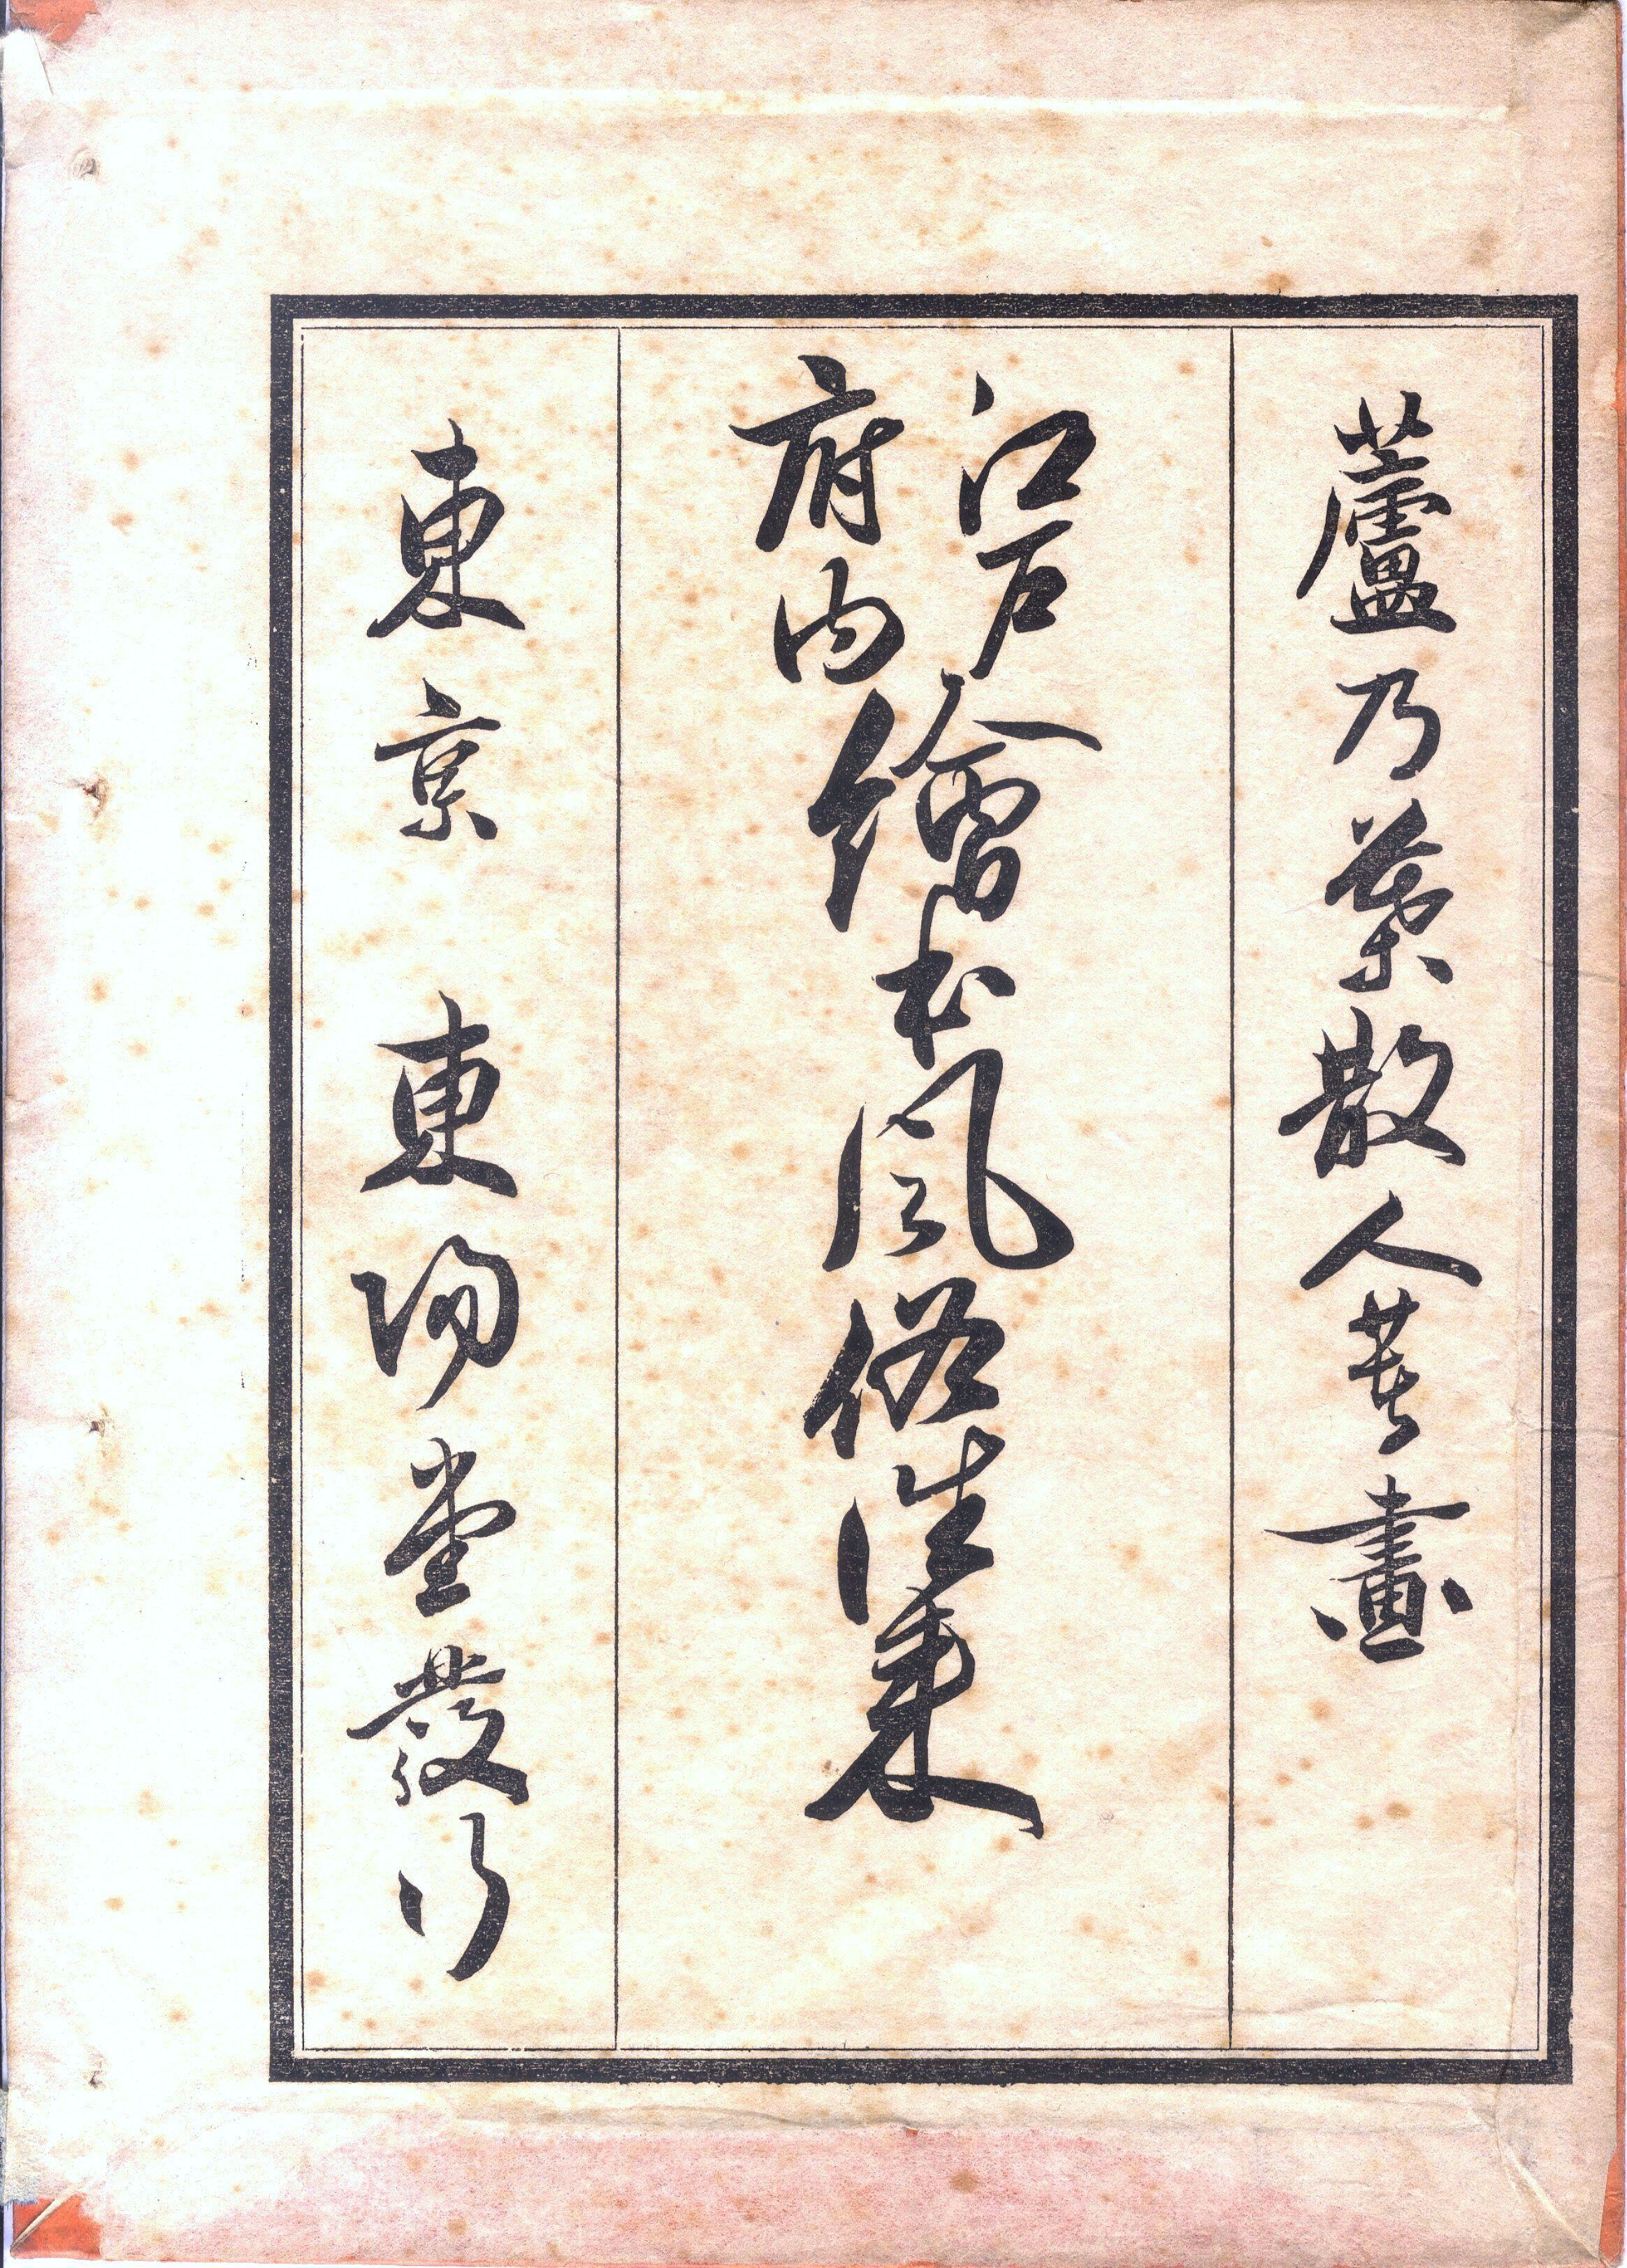 蘆乃葉散人著畫
江戸
府内
繪本風俗往來
東京 東陽堂發行